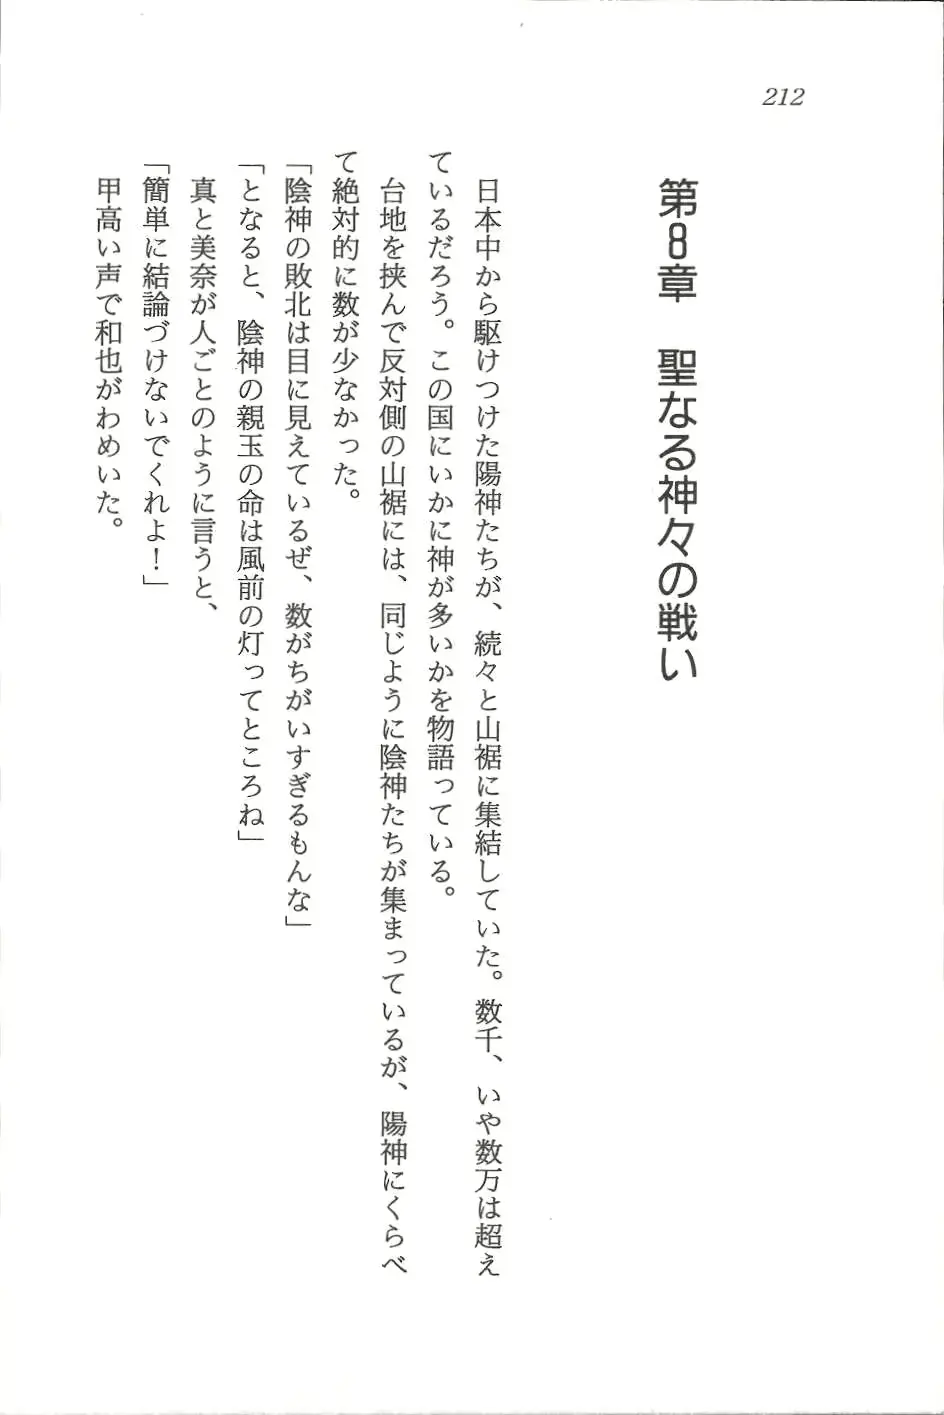 212
第8章　聖なる神々の戦い
　日本中から駆けつけた陽神たちが、続々と山裾に集結していた。数千、いや数万は超え
ているだろう。この国にいかに神が多いかを物語っている。
　台地を挟んで反対側の山裾には、同じように陰神たちが集まっているが、陽神にくらべ
て絶対的に数が少なかった。
「陰神の敗北は目に見えているぜ、数がちがいすぎるもんな」
「となると、陰神の親玉の命は風前の灯ってところね」
　真と美奈が人ごとのように言うと、
「簡単に結論づけないでくれよ！」
　甲高い声で和也がわめいた。